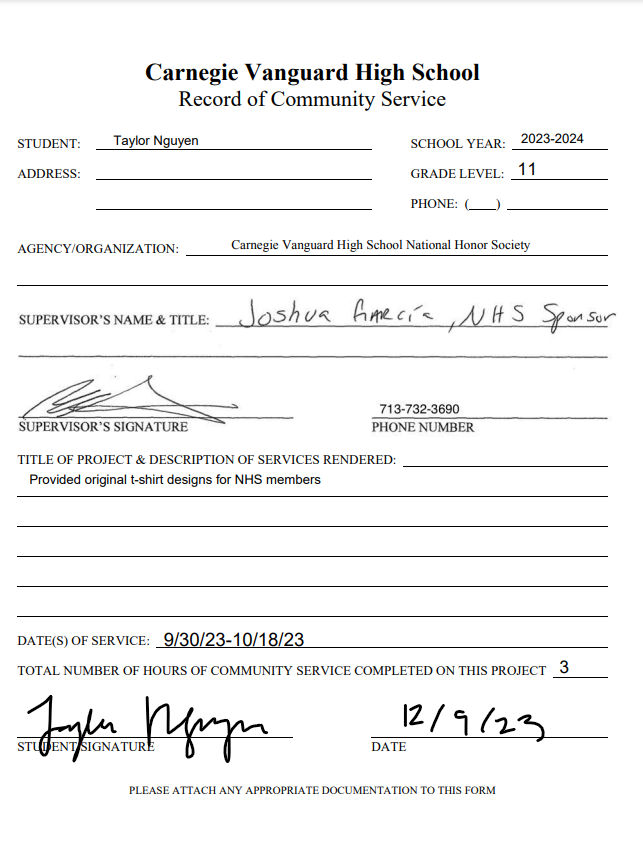 Carnegie Vanguard High School
Record of Community Service
STUDENT: Taylor Nguyen SCHOOL YEAR: 2023-2024
ADDRESS: GRADE LEVEL: 11
PHONE: (___)
AGENCY/ORGANIZATION: Carnegie Vanguard High School National Honor Society
SUPERVISOR'S NAME & TITLE: Joshua Garcia, NHS Sponsor
713-732-3690
SUPERVISOR'S SIGNATURE PHONE NUMBER
TITLE OF PROJECT & DESCRIPTION OF SERVICES RENDERED:
Provided original t-shirt designs for NHS members
DATE(S) OF SERVICE: 9/30/23-10/18/23
TOTAL NUMBER OF HOURS OF COMMUNITY SERVICE COMPLETED ON THIS PROJECT 3
Taylor Nguyen 12/9/23
STUDENT SIGNATURE DATE
PLEASE ATTACH ANY APPROPRIATE DOCUMENTATION TO THIS FORM